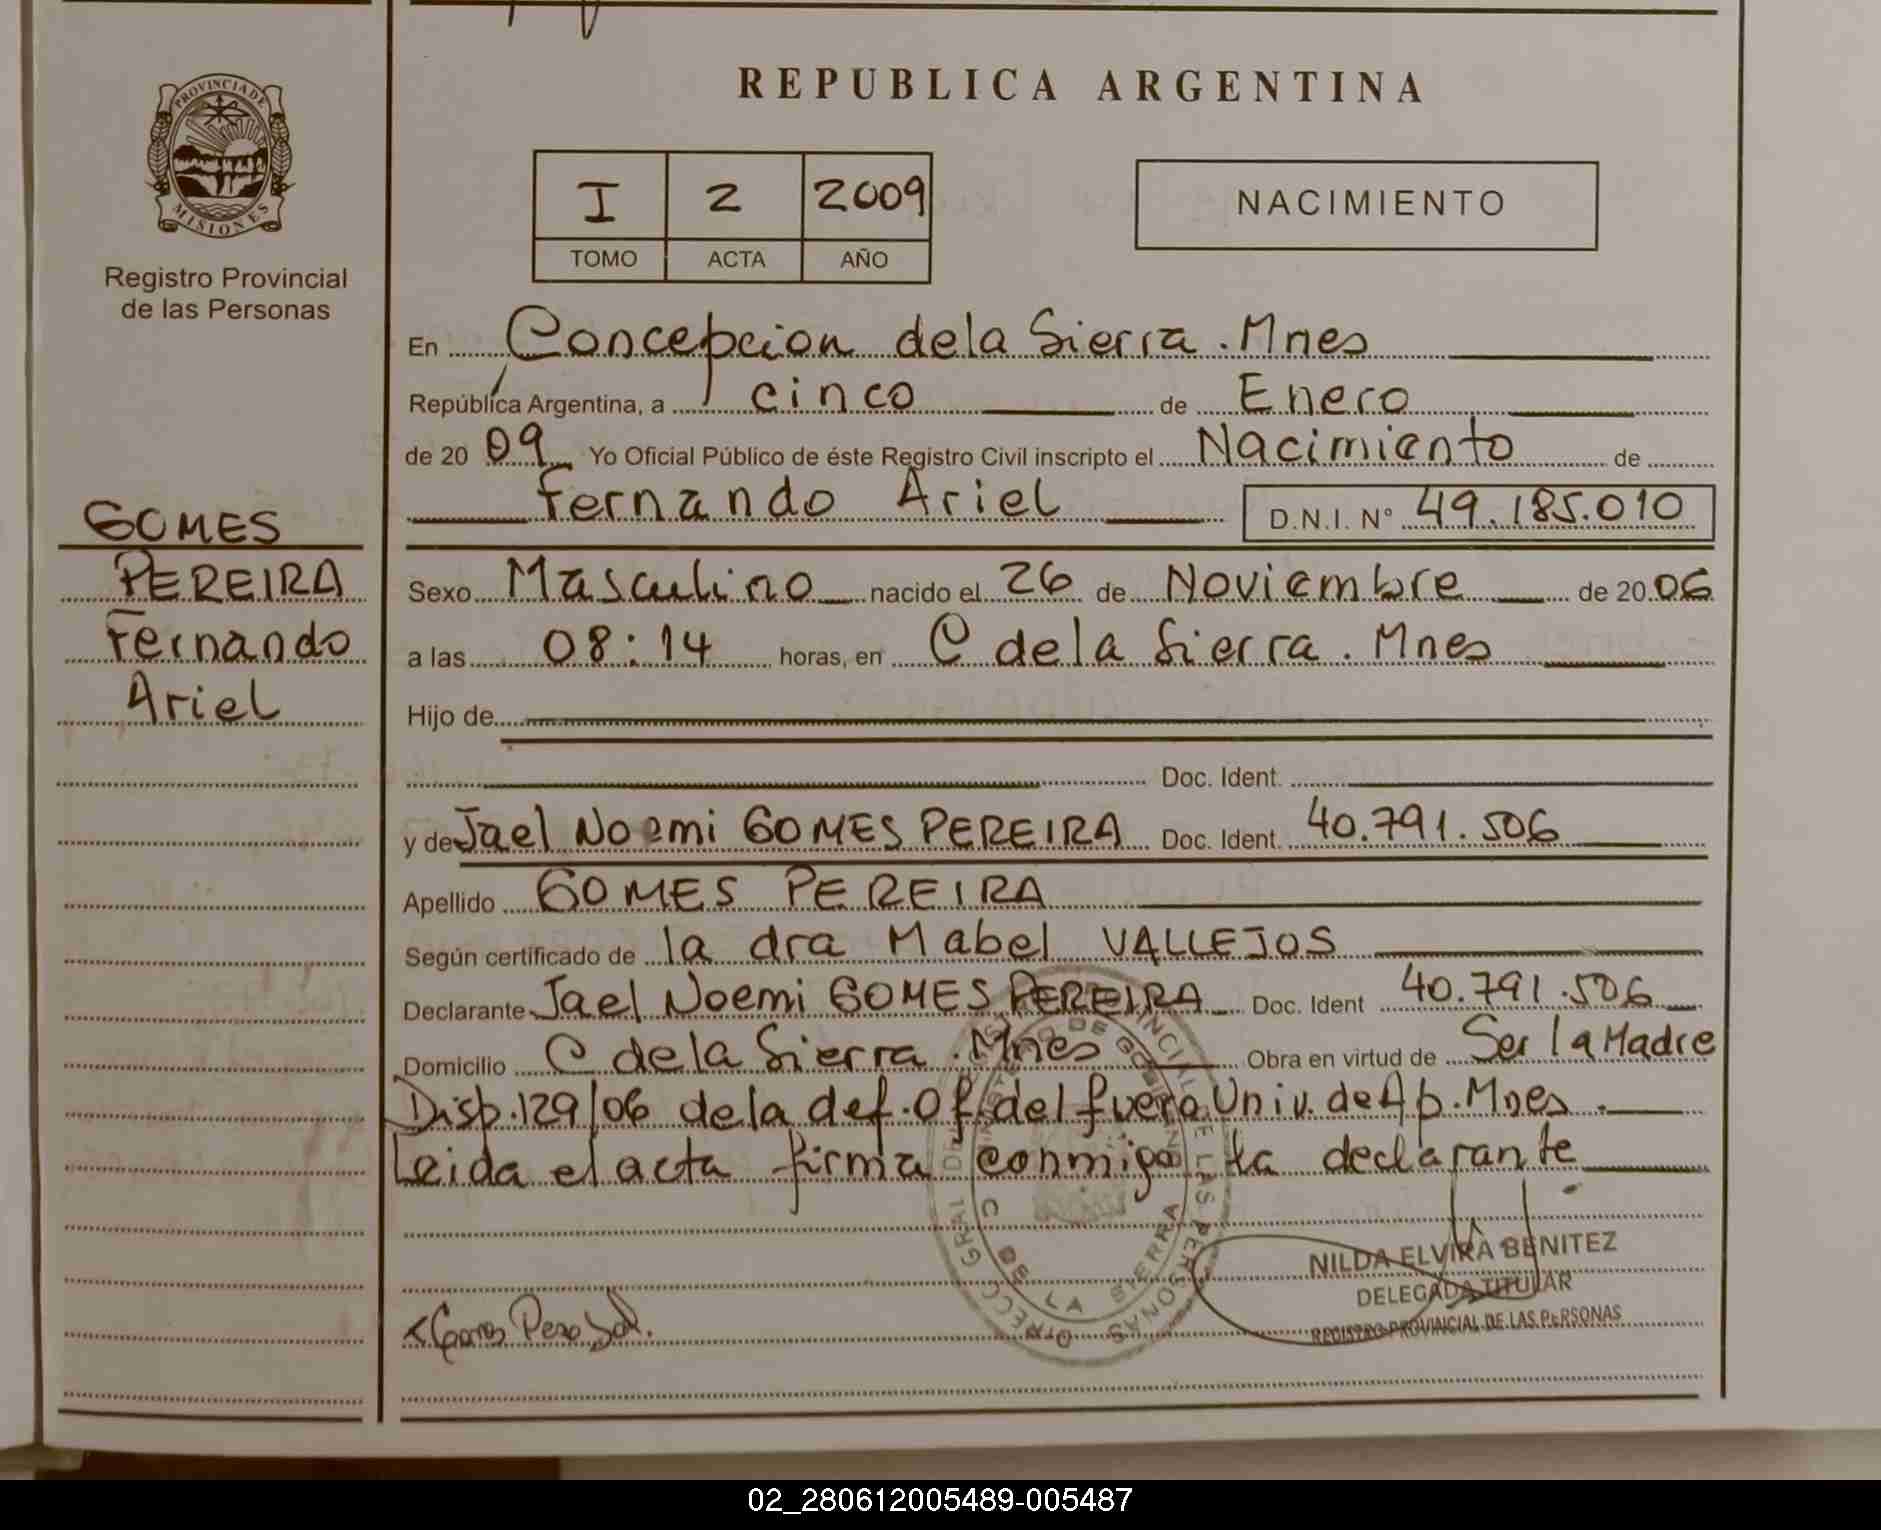 REPUBLICA ARGENTINA
PROVINCIA DE
MISIONES
Registro Provincial
de las Personas
I 2 2009
TOMO ACTA AÑO
NACIMIENTO
En Concepcion dela Sierra. Mnes
República Argentina, a cinco de Enero
de 2009 Yo Oficial Público de éste Registro Civil inscripto el Nacimiento de
Fernando Ariel D.N.I. N° 49.185.010
GOMES
PEREIRA
Fernando
Ariel
Sexo Masculino nacido el 26 de Noviembre de 2006
a las 08:14 horas, en C dela Sierra. Mnes
Hijo de
Doc. Ident.
y de Jael Noemi GOMES PEREIRA Doc. Ident. 40.791.506
Apellido GOMES PEREIRA
Según certificado de la dra Mabel VALLEJOS
Declarante Jael Noemi GOMES PEREIRA Doc. Ident 40.791.506
Domicilio C dela Sierra. Mnes Obra en virtud de Ser la Madre
Disp. 129/06 dela def. Of. del fuero Univ. de Ap. Mnes.
Leida el acta firma conmigo la declarante
C DE LA SIERRA
NILDA ELVIRA BENITEZ
DELEGADA TITULAR
REGISTRO PROVINCIAL DE LAS PERSONAS
02_280612005489-005487